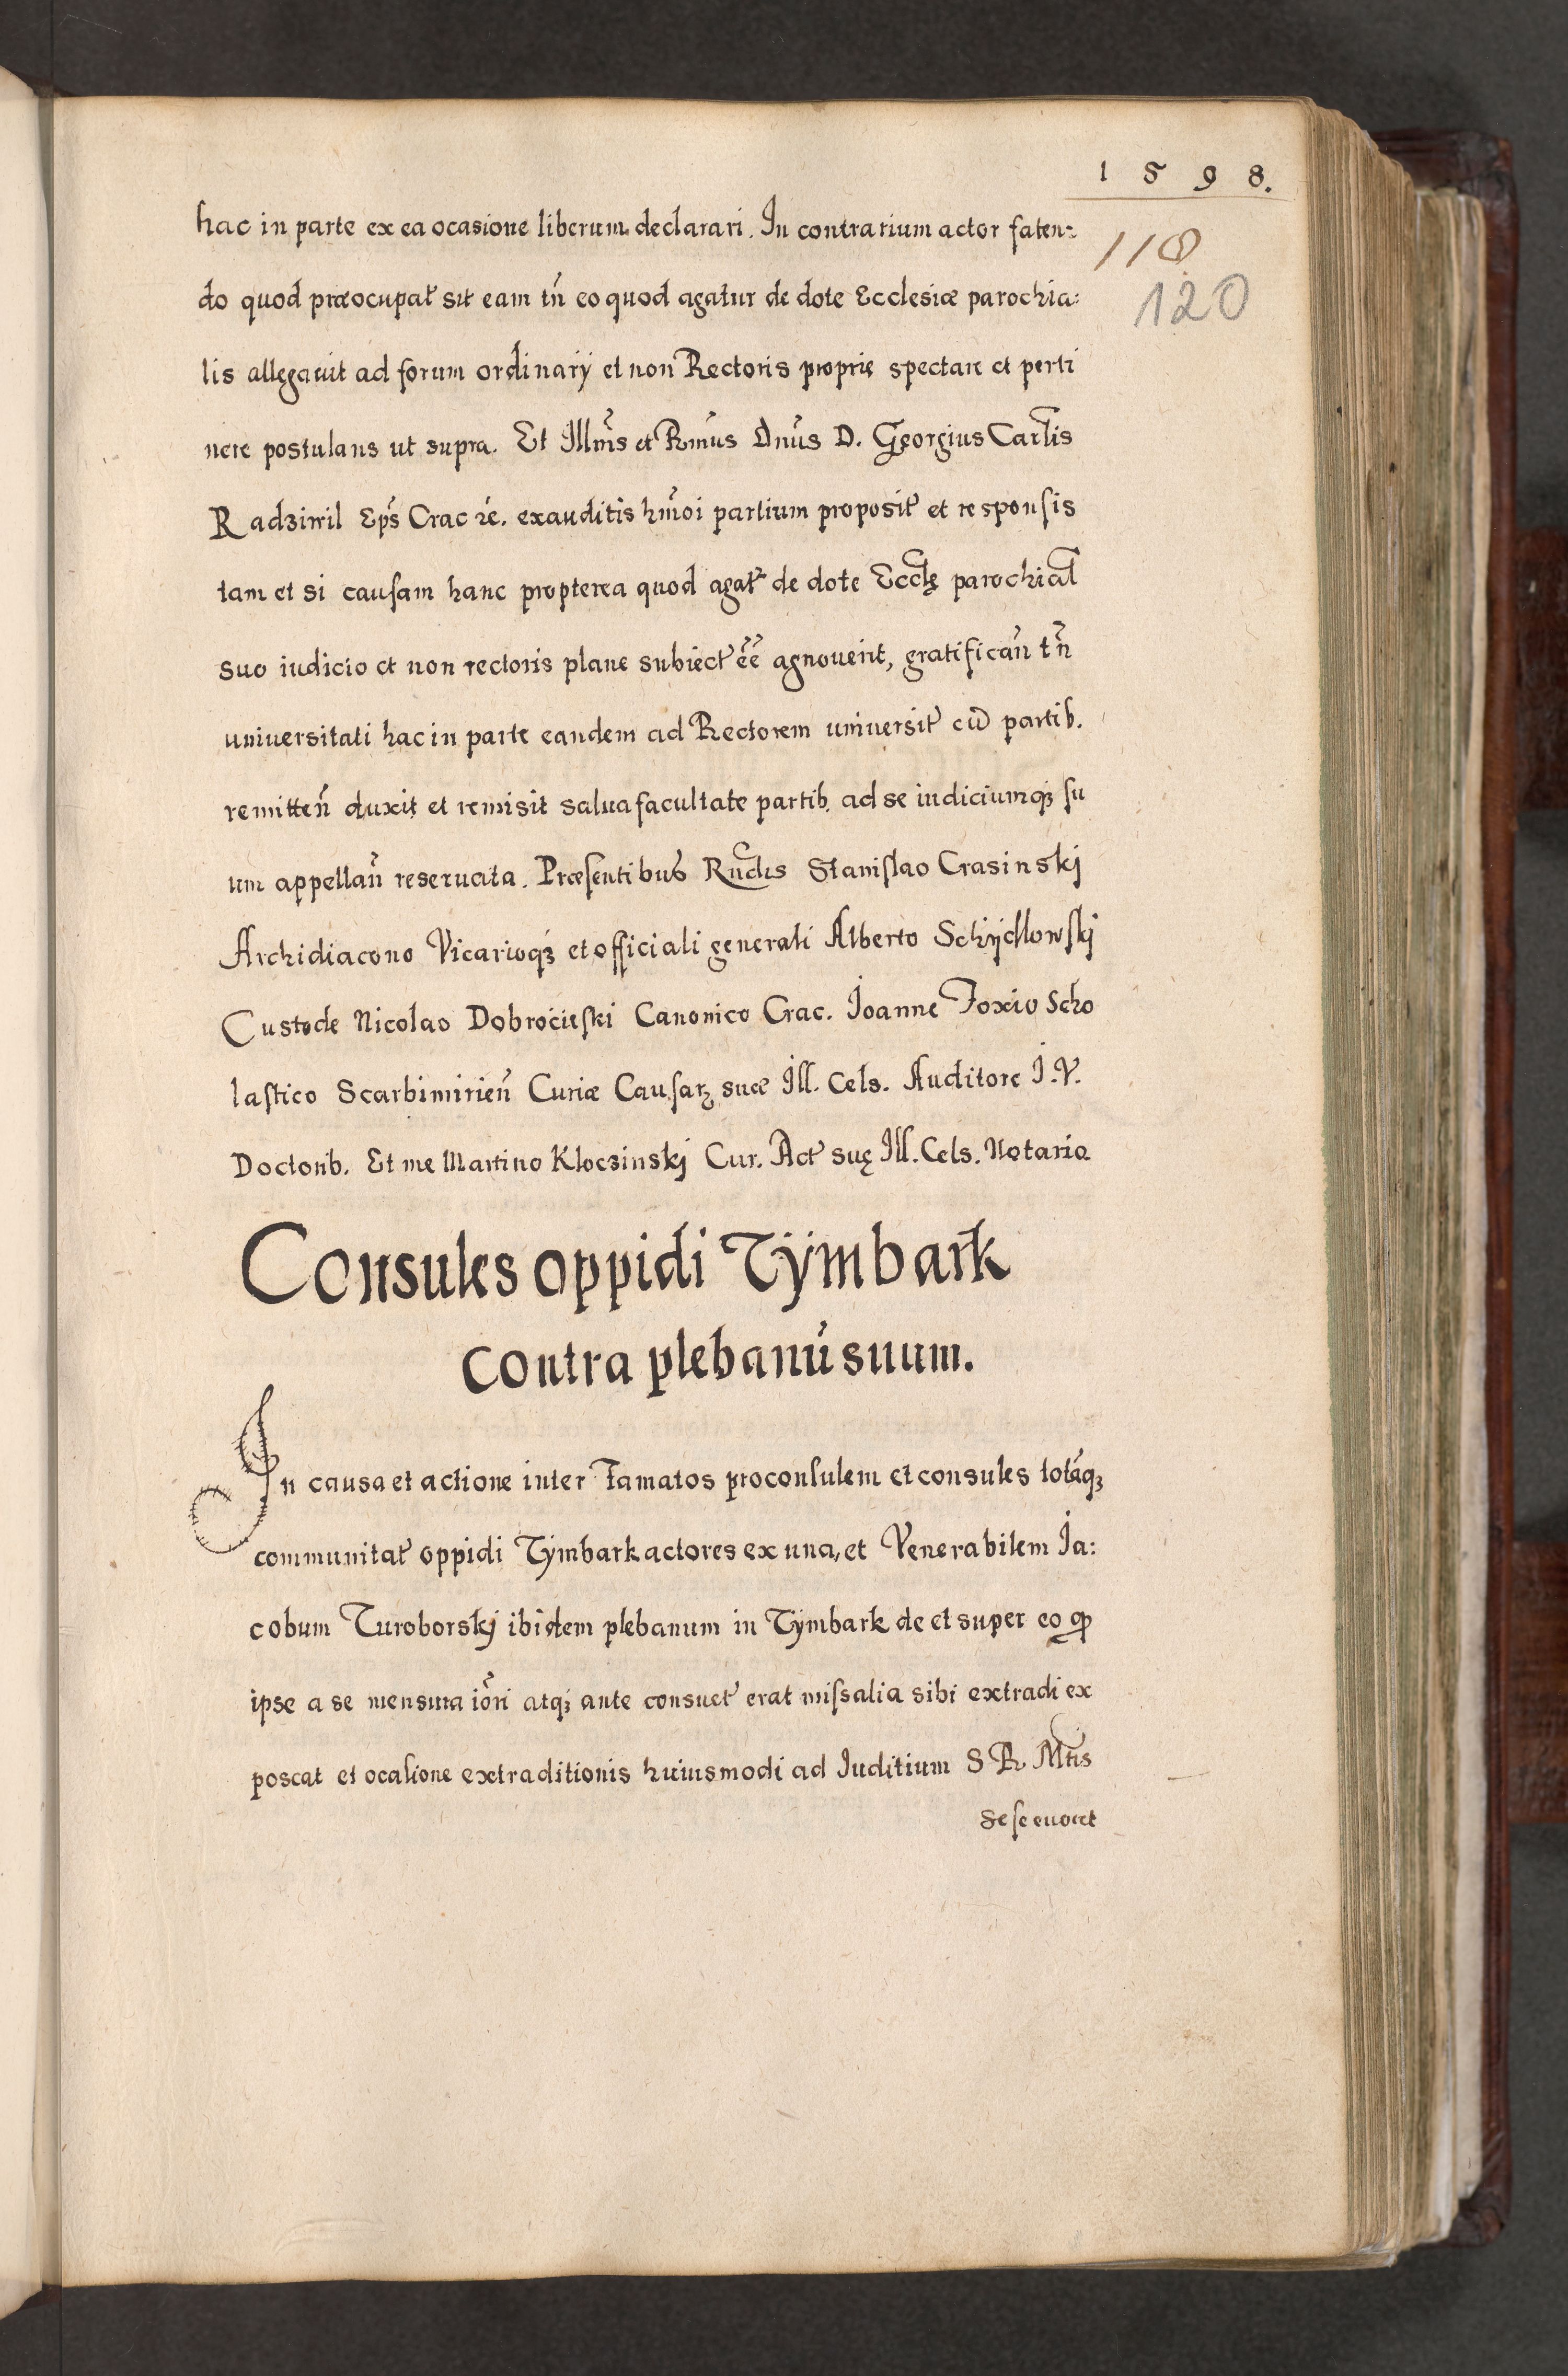 1598.
118
120
hac in parte ex ea ocasione liberum declarari. In contrarium actor faten:
do quod præocupat̃ sit eam tñ eo quod agatur de dote Ecclesiæ parochia:
lis allęgauit ad forum ordinarij et non Rectoris proprię spectare et perti
nere postulans ut supra. Et Illm̃s et Rm̃us Dñus D. Georgius Car̃lis
Radziwil Ep̃s Crac ꝛc̃. exauditis hm̃oi partium proposit̃ et responsis
tam et si causam hanc propterea quod agat̃ de dote Eccl̃ę parochial̃
suo iudicio et non rectoris plane subiect̃ ẽẽ agnouerit, gratificañ tñ
uniuersitati hac in parte eandem ad Rectorem uniuersit̃ cũ partib.
remitteñ duxit et remisit salua facultate partib. ad se iudiciumqȝ su
um appellañ reseruata. Præsentibus Rñdis Stanislao Crasinskj
Archidiacono Vicarioqȝ et officiali generali Alberto Schÿdlowskj
Custode Nicolao Dobrocieski Canonico Crac. Ioanne Foxio Scho
lastico Scarbimirieñ Curiæ Causarꝝ suæ Ill. Cels. Auditore I.V.
Doctorib. Et me Martino Kloczinskj Cur. Act̃ suę Ill. Cels. Notario
Consules oppidi Tÿmbark
contra plebanũ suum.
In causa et actione inter Famatos proconsulem et consules totãqȝ
communitat̃ oppidi Tÿmbark actores ex una, et Venerabilem Ia:
cobum Turoborskj ibidem plebanum in Tÿmbark de et super eo ꝙ
ipse a se mensura iõri atqȝ ante consuet̃ erat missalia sibi extradi ex
poscat et ocasione extraditionis huiusmodi ad Iuditium S R Mt̃is
sese euocet